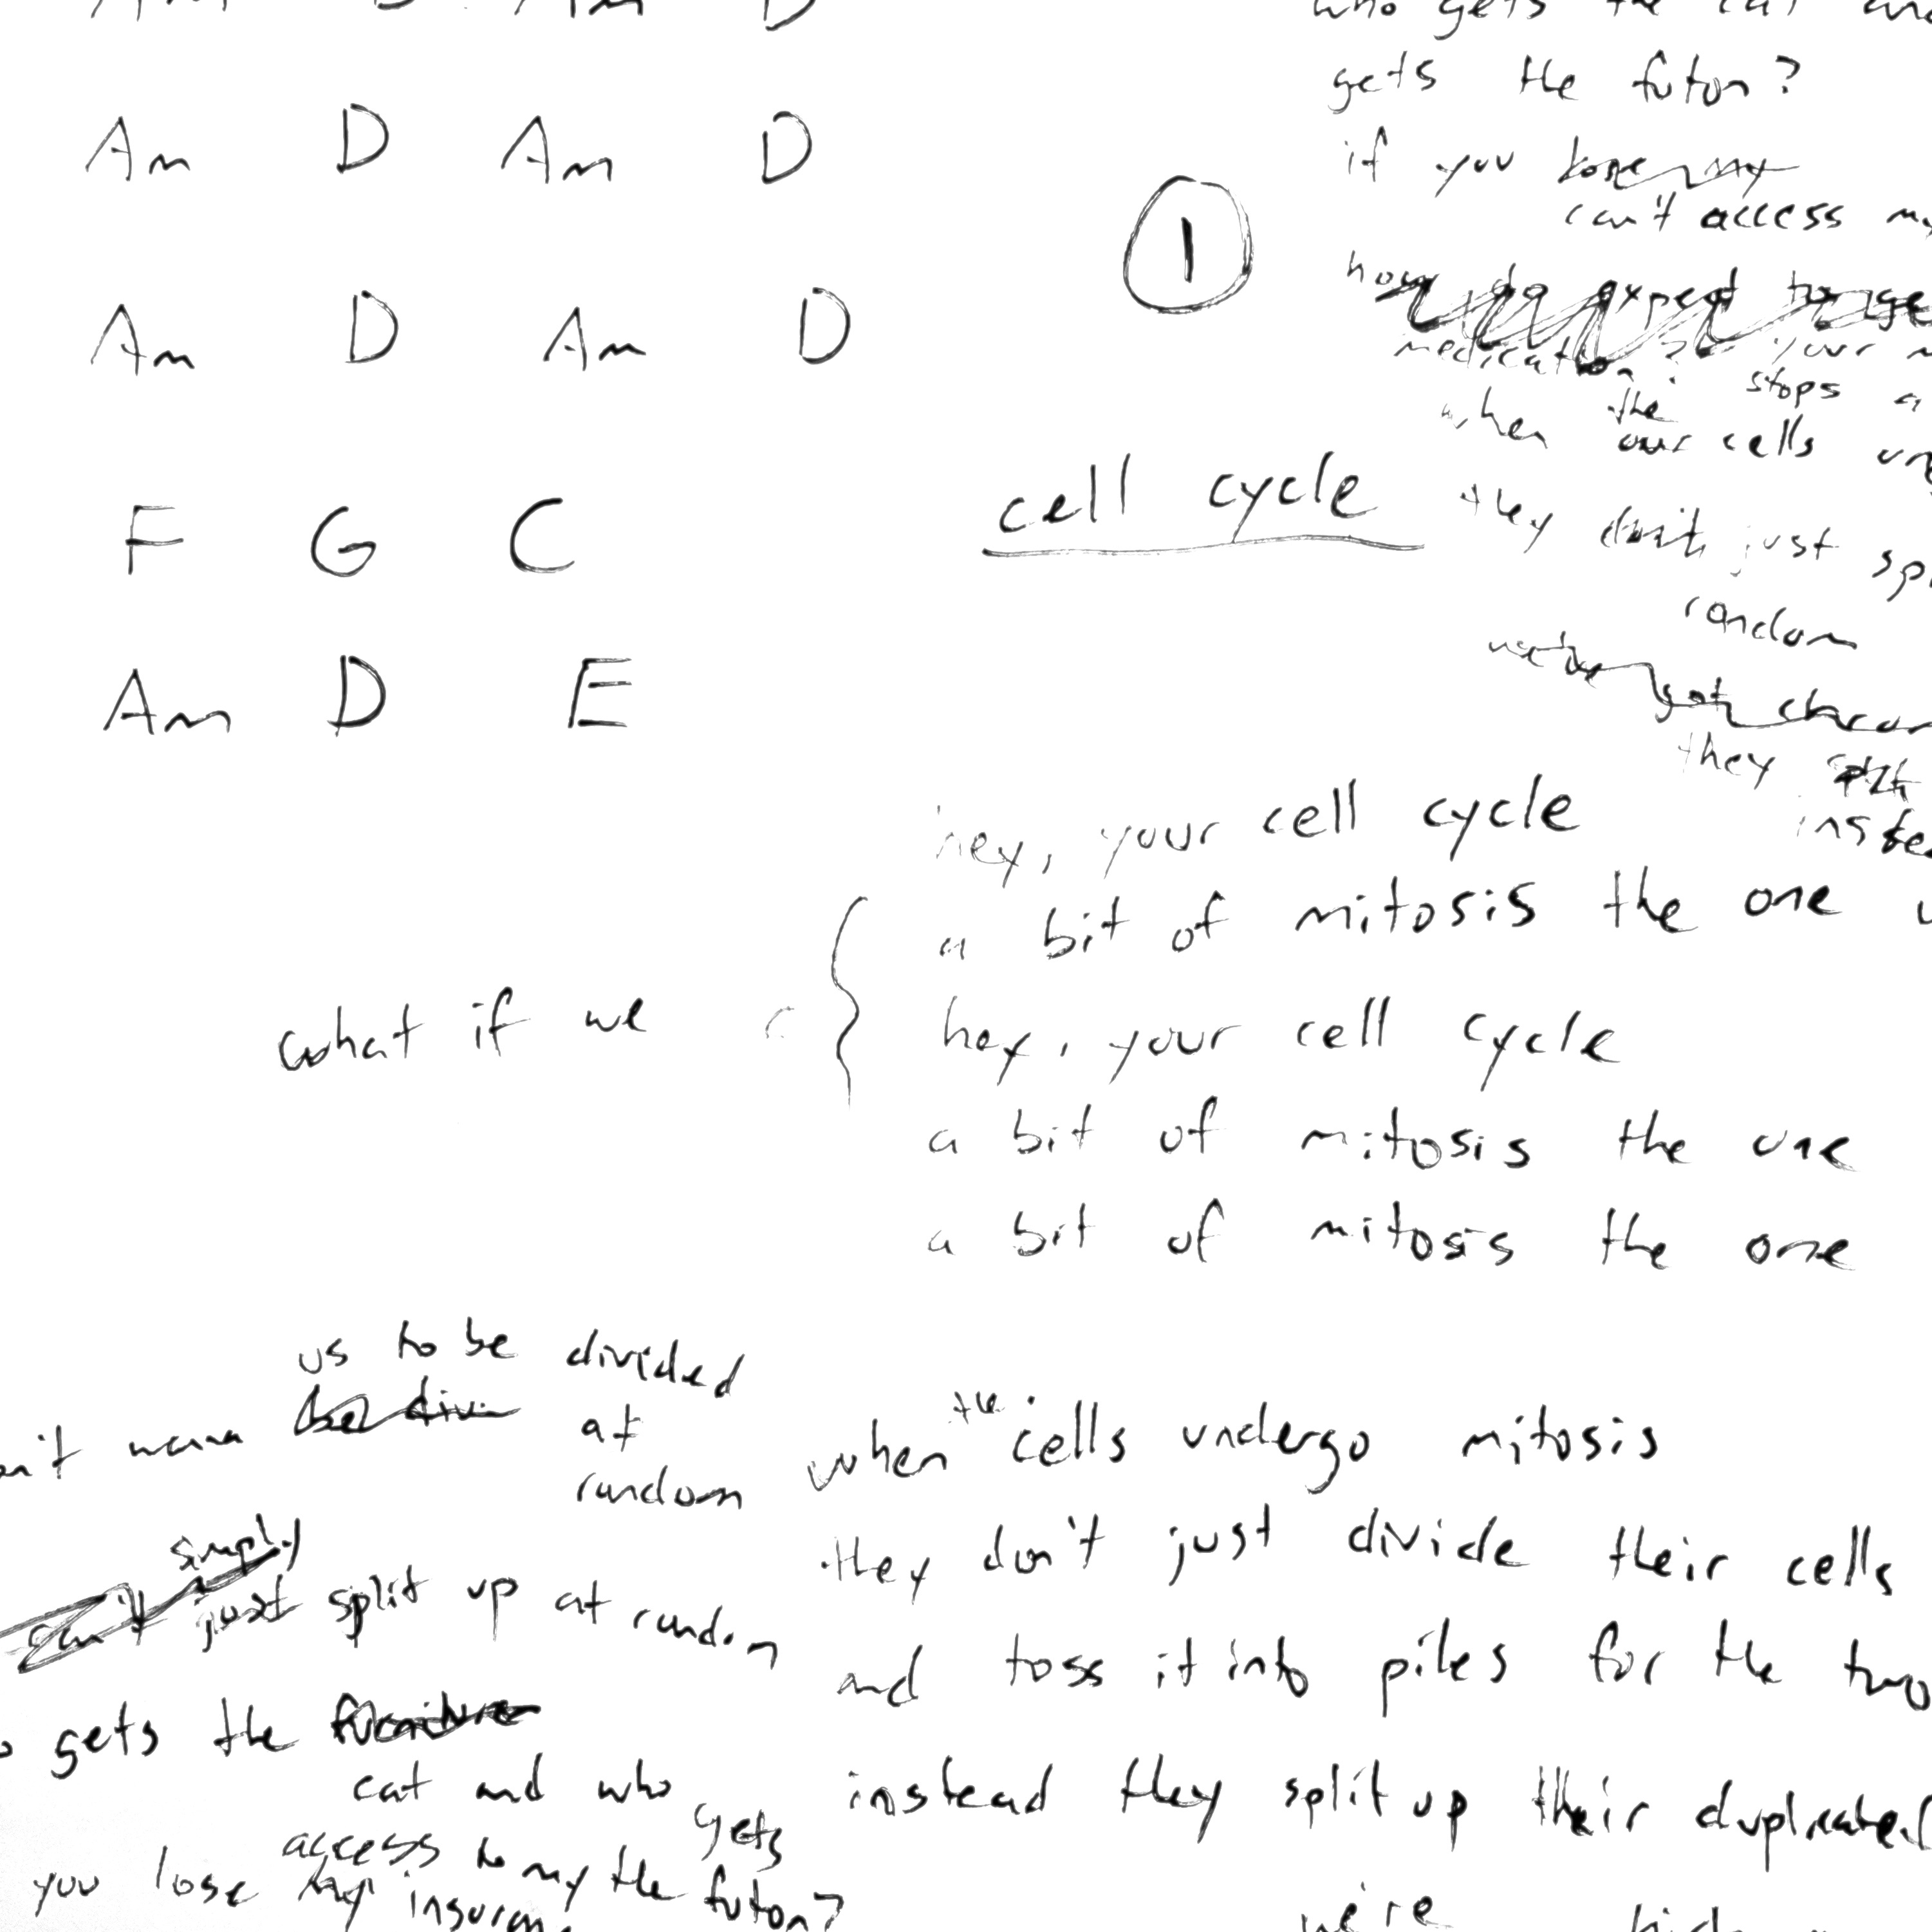 Am D Am D
Am D Am D
Am D Am D
F G C
Am D E
1
cell cycle
who gets the cat
gets the futon?
if you lose my
can't access
how do expect to
medication? your
stops
when the
our cells
they don't just
random
got
they split
hey, your cell cycle
a bit of mitosis the one
what if we
hey, your cell cycle
a bit of mitosis the one
a bit of mitosis the one
us to be divided
wanna be div at
random
simply
can't just split up at random
gets the furniture
cat and who
gets
access to my the futon?
you lose my
when the cells undergo mitosis
they don't just divide their cells
and toss it into piles for the two
instead they split up their duplicated
we're